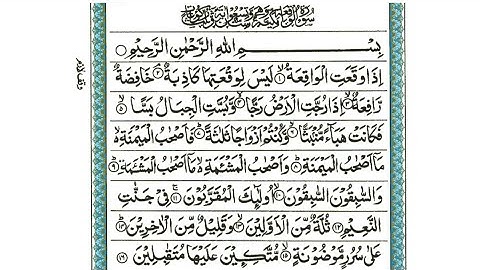 بِسْمِ اللهِ الرَّحْمٰنِ الرَّحِيْمِ
اِذَا وَقَعَتِ الْوَاقِعَةُ ۙ﴿۱﴾ لَيْسَ لِوَقْعَتِهَا كَاذِبَةٌ ۘ﴿۲﴾ خَافِضَةٌ
رَّافِعَةٌ ۙ﴿۳﴾ اِذَا رُجَّتِ الْاَرْضُ رَجًّا ۙ﴿۴﴾ وَّبُسَّتِ الْجِبَالُ بَسًّا ۙ﴿۵﴾
فَكَانَتْ هَبَآءً مُّنْۢبَثًّا ۙ﴿۶﴾ وَّكُنْتُمْ اَزْوَاجًا ثَلٰثَةً ؕ﴿۷﴾ فَاَصْحٰبُ الْمَيْمَنَةِ ۙ
مَاۤ اَصْحٰبُ الْمَيْمَنَةِ ؕ﴿۸﴾ وَاَصْحٰبُ الْمَشْـَٔمَةِ ۙ مَاۤ اَصْحٰبُ الْمَشْـَٔمَةِ ؕ﴿۹﴾
وَالسّٰبِقُوْنَ السّٰبِقُوْنَ ۚۙ﴿۱۰﴾ اُولٰٓئِكَ الْمُقَرَّبُوْنَ ۚ﴿۱۱﴾ فِيْ جَنّٰتِ
النَّعِيْمِ ﴿۱۲﴾ ثُلَّةٌ مِّنَ الْاَوَّلِيْنَ ۙ﴿۱۳﴾ وَقَلِيْلٌ مِّنَ الْاٰخِرِيْنَ ؕ﴿۱۴﴾
عَلٰى سُرُرٍ مَّوْضُوْنَةٍ ۙ﴿۱۵﴾ مُّتَّكِـِٕيْنَ عَلَيْهَا مُتَقٰبِلِيْنَ ﴿۱۶﴾
وقف لازم